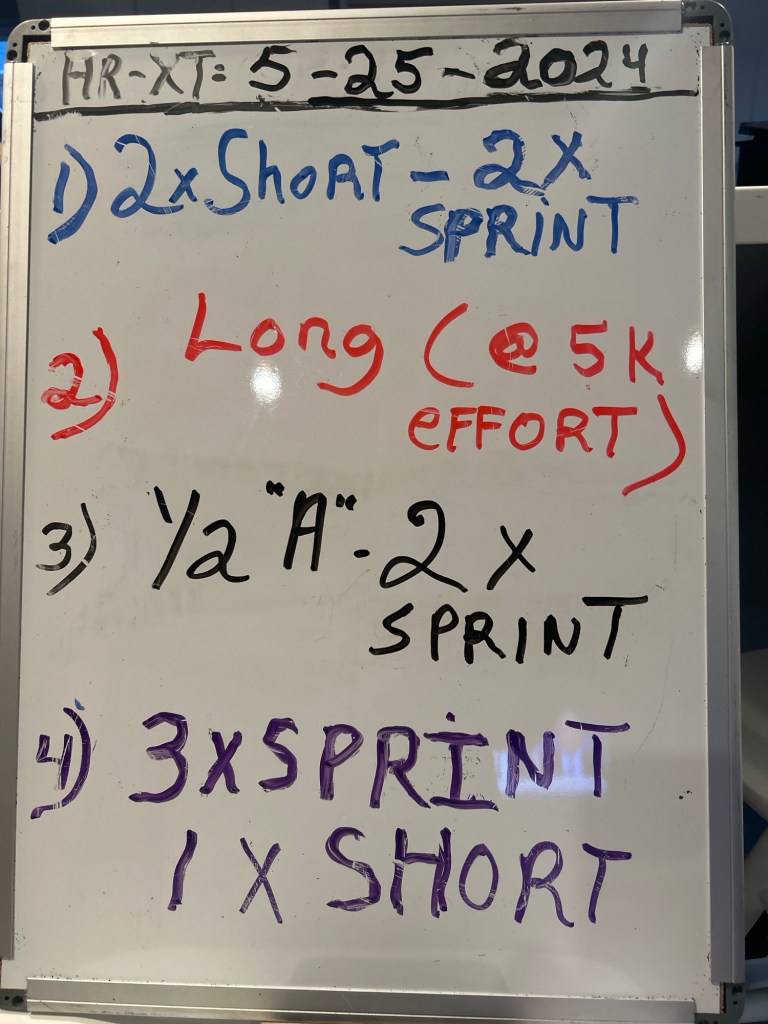 HR-XT: 5-25-2024
1) 2x ShoRT - 2x
SPRiNT
2) Long (@ 5K
eFFORT)
3) 1/2 "A" - 2 x
SPRINT
4) 3 X SPRINT
1 X SHORT